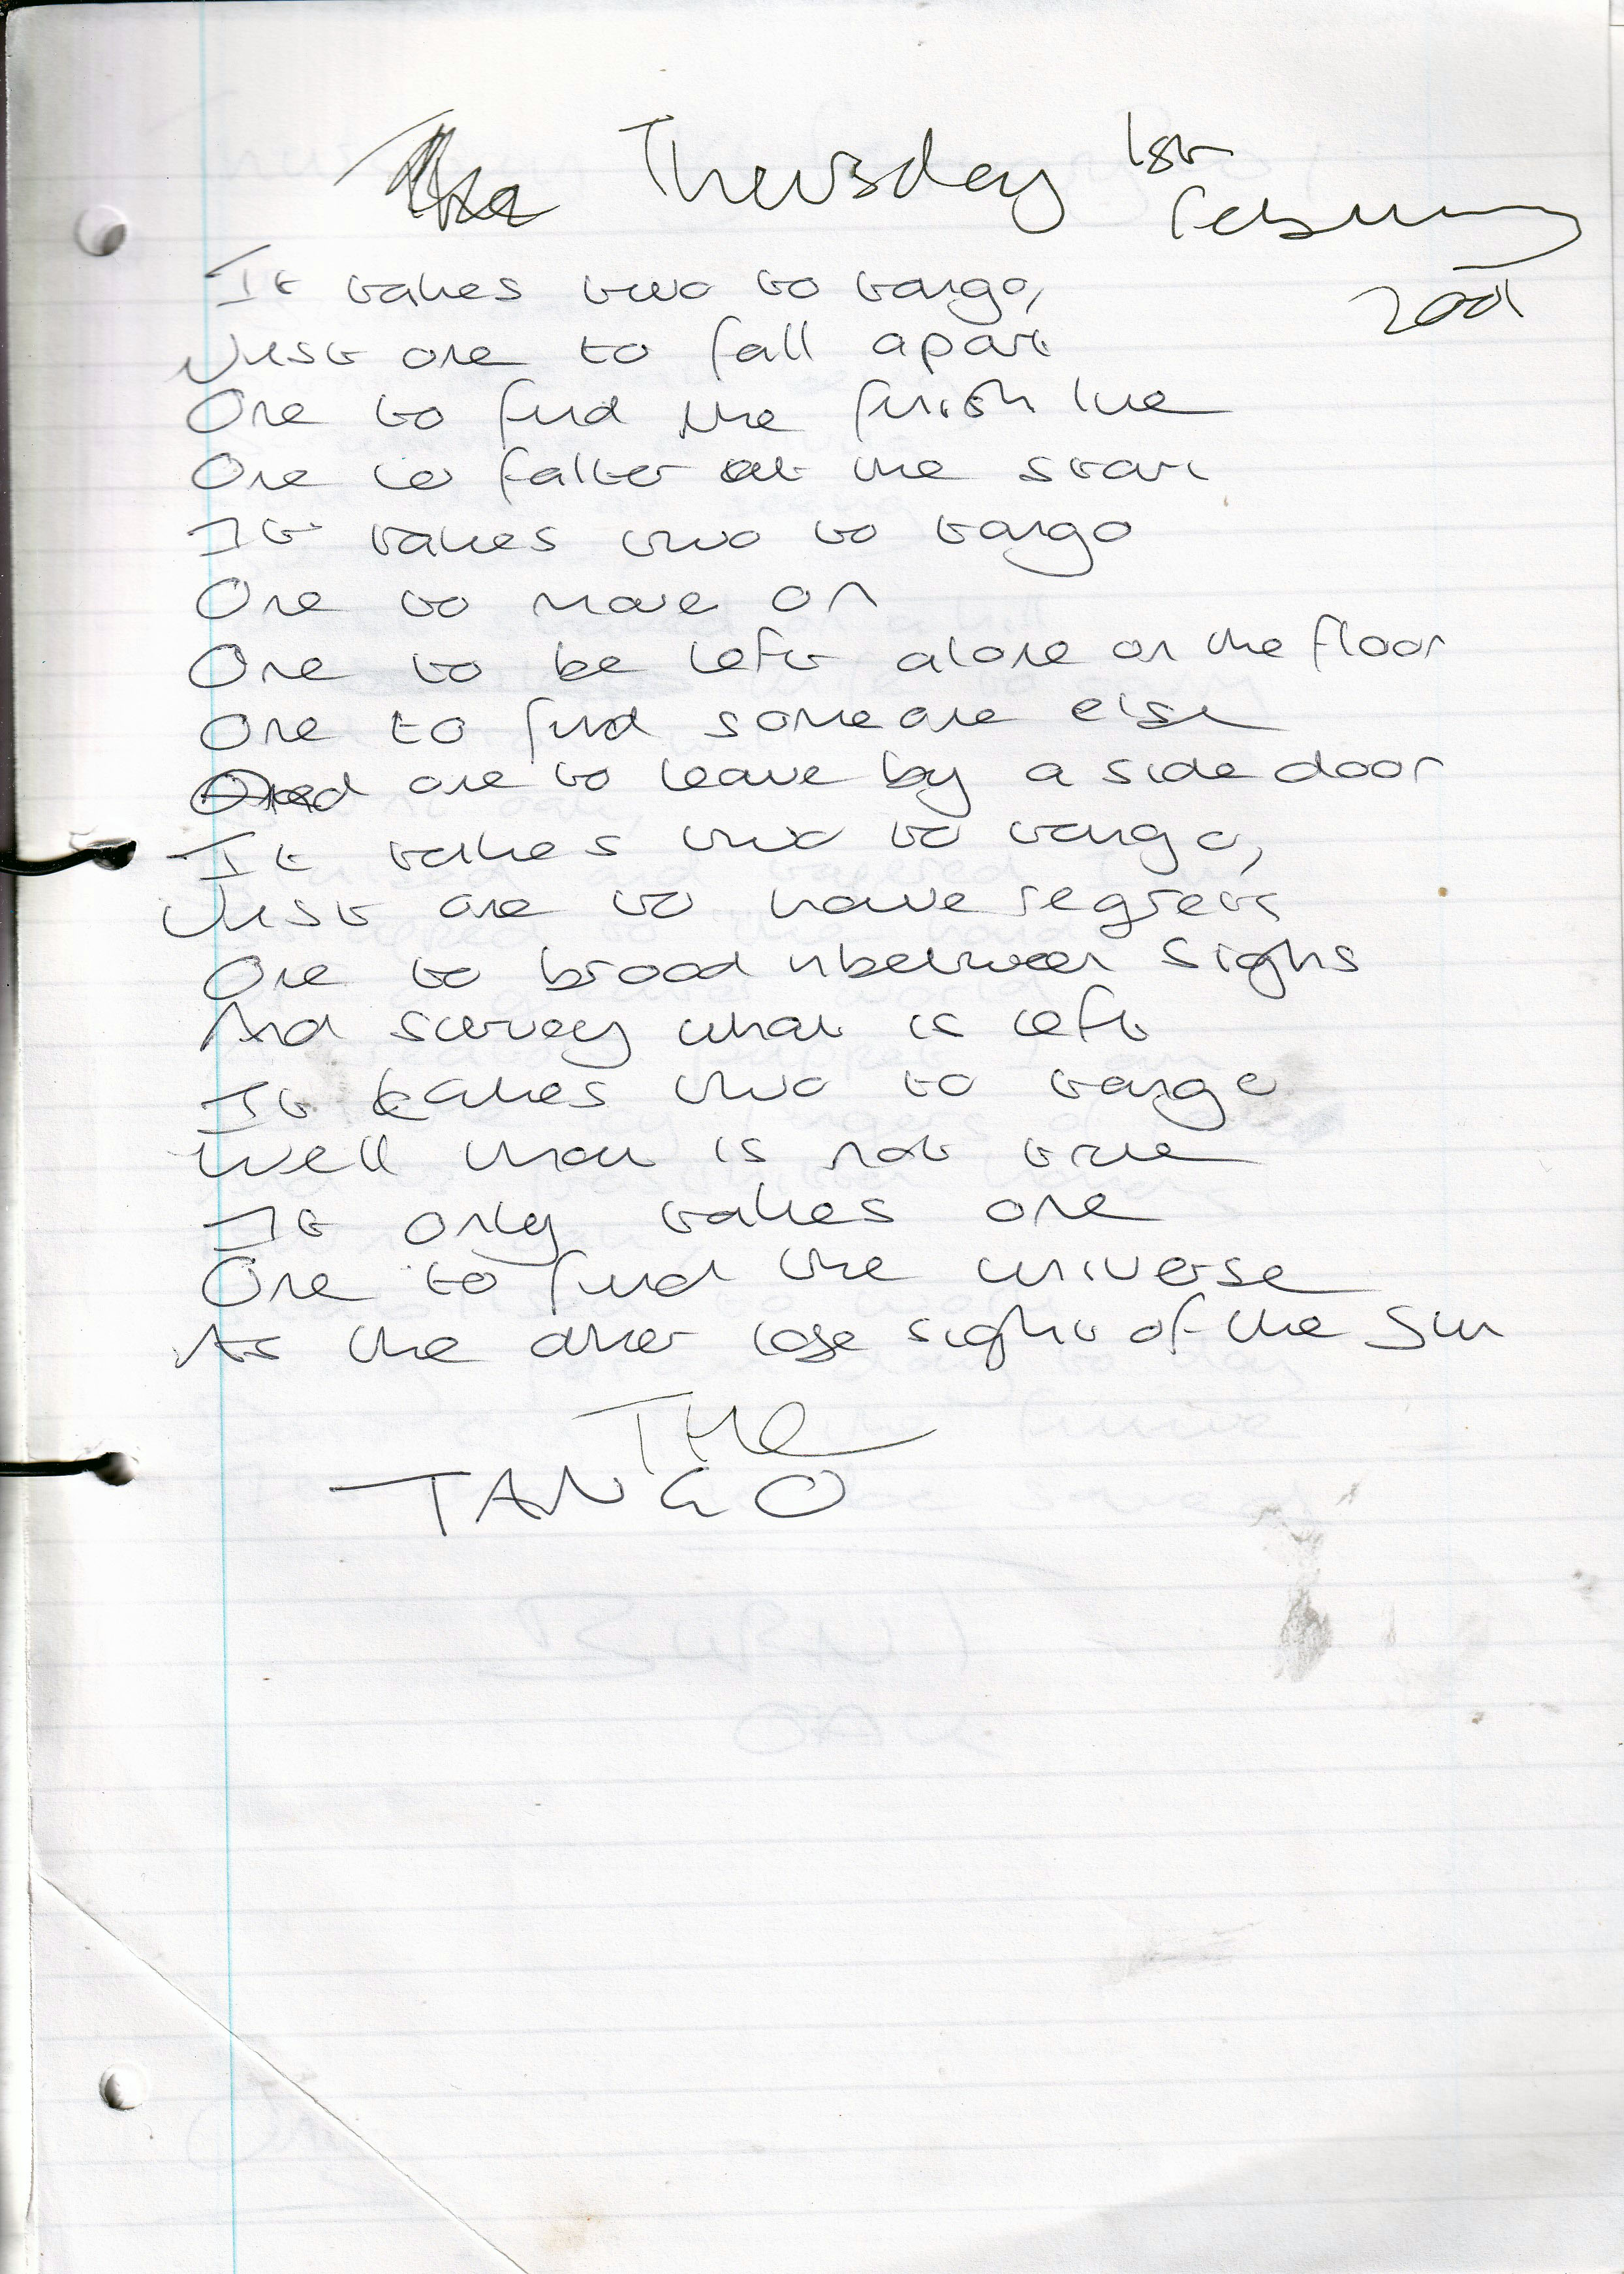 Thursday 1st
February
2001
It takes two to tango,
Just one to fall apart
One to find the finish line
One to falter at the start
It takes two to tango
One to move on
One to be left alone on the floor
One to find someone else
And one to leave by a side door
It takes two to tango,
Just one to have regrets
One to brood inbetween sighs
And survey what is left
It takes two to tango
Well that is not true
It only takes one
One to find the universe
As the other lose sight of the Sun
THE
TANGO